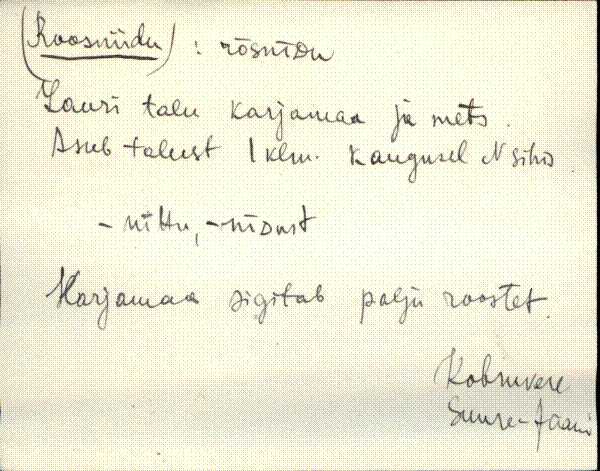 (Roosniidu) : rōsnīᴅu
Lauri talu karjamaa ja mets.
Asub talust 1 klm. kaugusel N sihis
- nīttu, - nīᴅust
Karjamaa sigitab palju roostet.
Kobruvere
Suure-Jaani